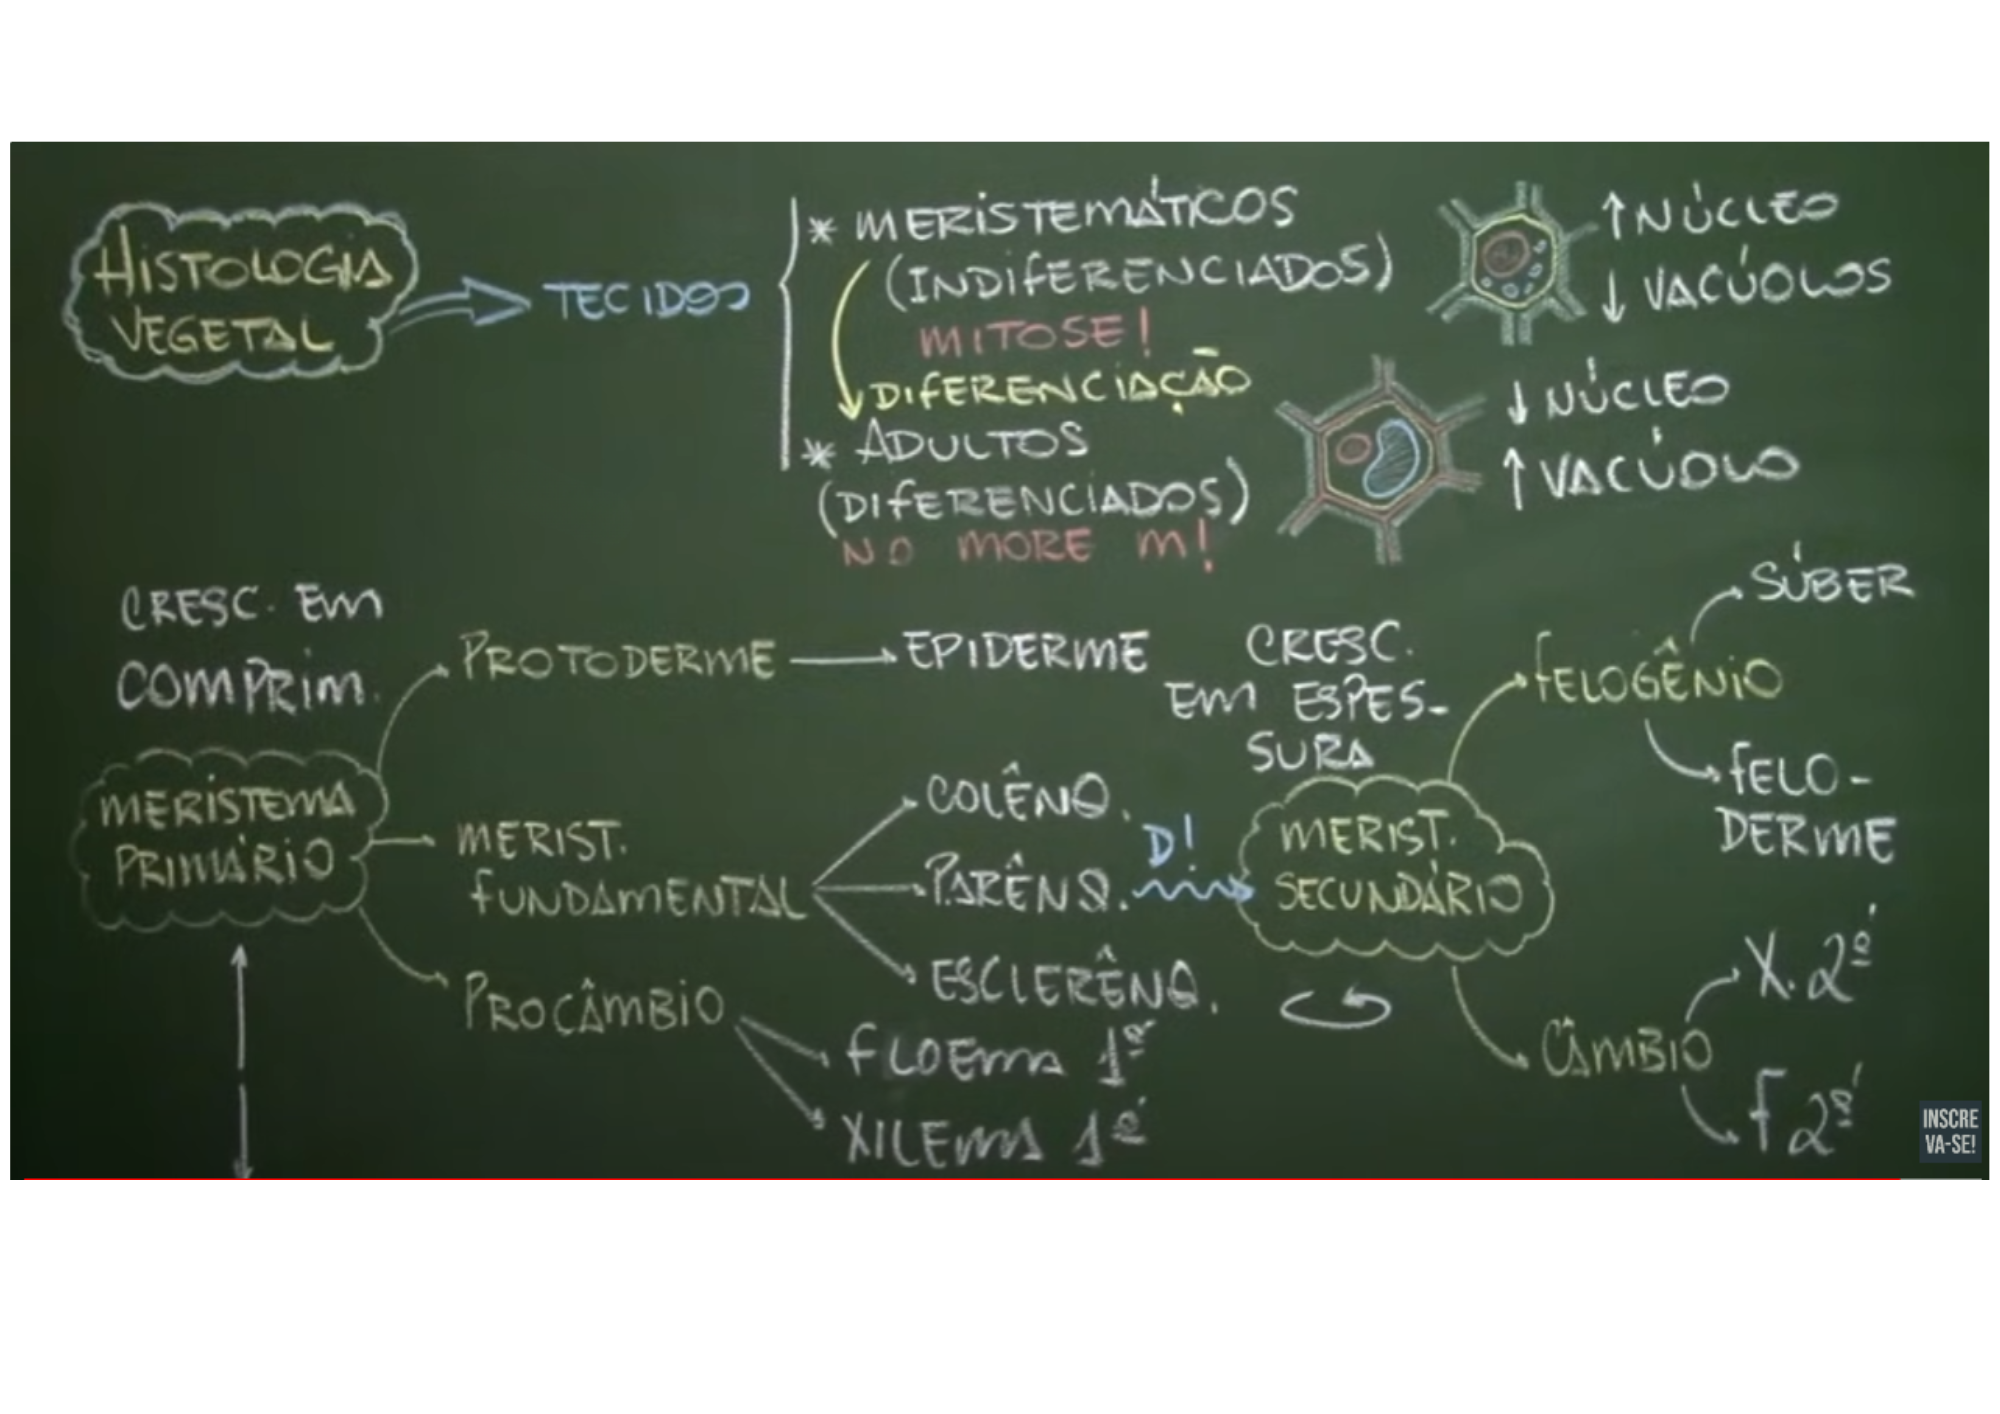 HISTOLOGIA
VEGETAL
TECIDOS
* MERISTEMÁTICOS
(INDIFERENCIADOS)
MITOSE!
DIFERENCIAÇÃO
* ADULTOS
(DIFERENCIADOS)
NO MORE M!
↑ NÚCLEO
↓ VACÚOLOS
↓ NÚCLEO
↑ VACÚOLO
CRESC. EM
COMPRIM.
MERISTEMA
PRIMÁRIO
PROTODERME
EPIDERME
MERIST.
FUNDAMENTAL
COLÊNQ.
PARÊNQ.
ESCLERÊNQ.
PROCÂMBIO
FLOEMA 1º
XILEMA 1º
D!
CRESC.
EM ESPES-
SURA
MERIST.
SECUNDÁRIO
FELOGÊNIO
SÚBER
FELO-
DERME
CÂMBIO
X. 2º
F 2º
INSCRE
VA-SE!